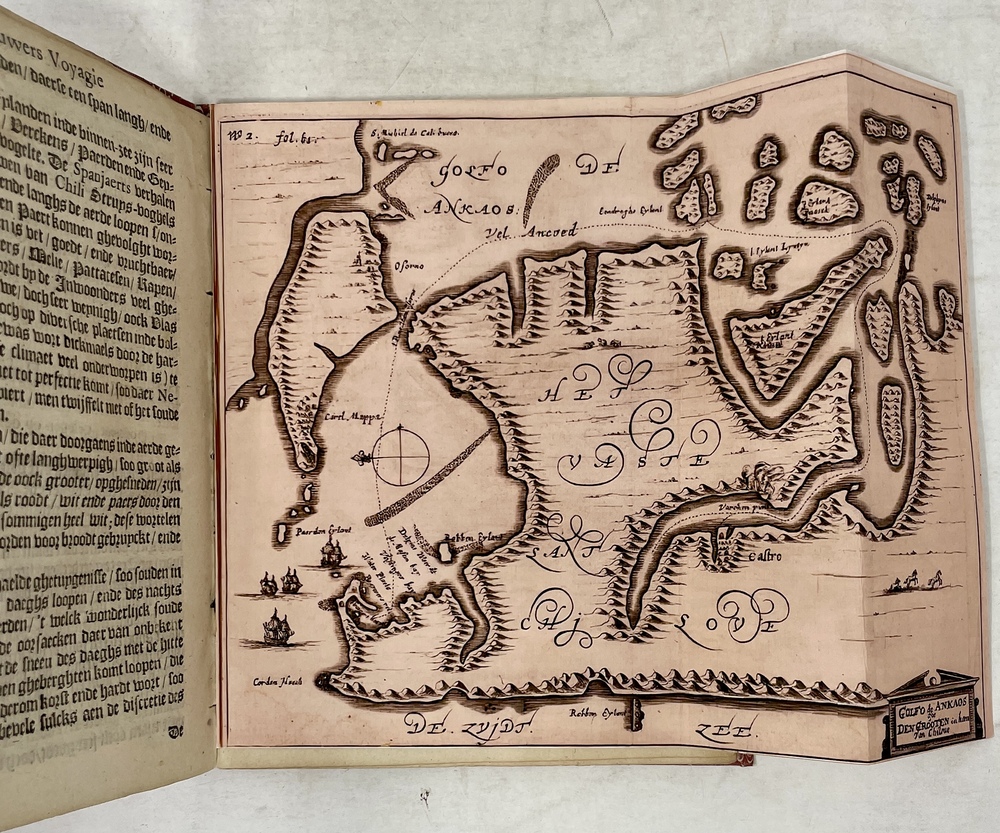 uwers Voyagie
den / daerse een span langh / ende
planden inde binnen-zee zijn seer
/ Verckens / Paerden ende Gey-
vogelte. De Spanjaerts verhalen
ven van Chili Struys-voghels
ende langhs de aerde loopen / on-
en Paert konnen ghevolght wor-
n is vet / goet / ende vruchtbaer /
ers / Melie / Pattatesen / Rapen /
ordt by de Inwoonders veel ghe-
we / doch seer weynigh / oock Vlas
och op diversche plaetsen inde bol-
ewas wort dickmaels door de har-
e climaet veel onderworpen is ) te
niet tot perfectie komt / soo daer Ne-
uiert / men twijffelt niet of het soude
n.
/ die daer doorgaens inde aerde ge-
t ofte langhwerpigh / soo groot als
de oock grooter / opghesneden / zijn
ls roodt / wit ende paers door den
sommigen heel wit; dese wortelen
orden voor broodt gebruyckt / ende
aelde ghetuygenisse / soo souden in
daeghs loopen / ende des nachts
erden / 't welck wonderlijck soude
de oorsaecken daer van onbekent
t de sneen des daeghs met de hitte
en gheberghten komt loopen / die
derom korst ende hardt wort / soo
hevele sulcks aen de discretie des
No 2. fol. 61.
S. Michiel de Calibuco.
GOLFO DE
ANKAOS.
Vel Ancoed
Osorno
Eendraghs Eylant
Eyland
Carel Mappa
HET
VASTE
LANT
CHJLOVE
Paerden Eylant
Robben Eylant
Verckens
Castro
Corden Hoeck
Robben Eylant
DE. ZVJDT.
ZEE.
GOLFO de ANKAOS
DEN GROOTEN in ham
Van Chilue